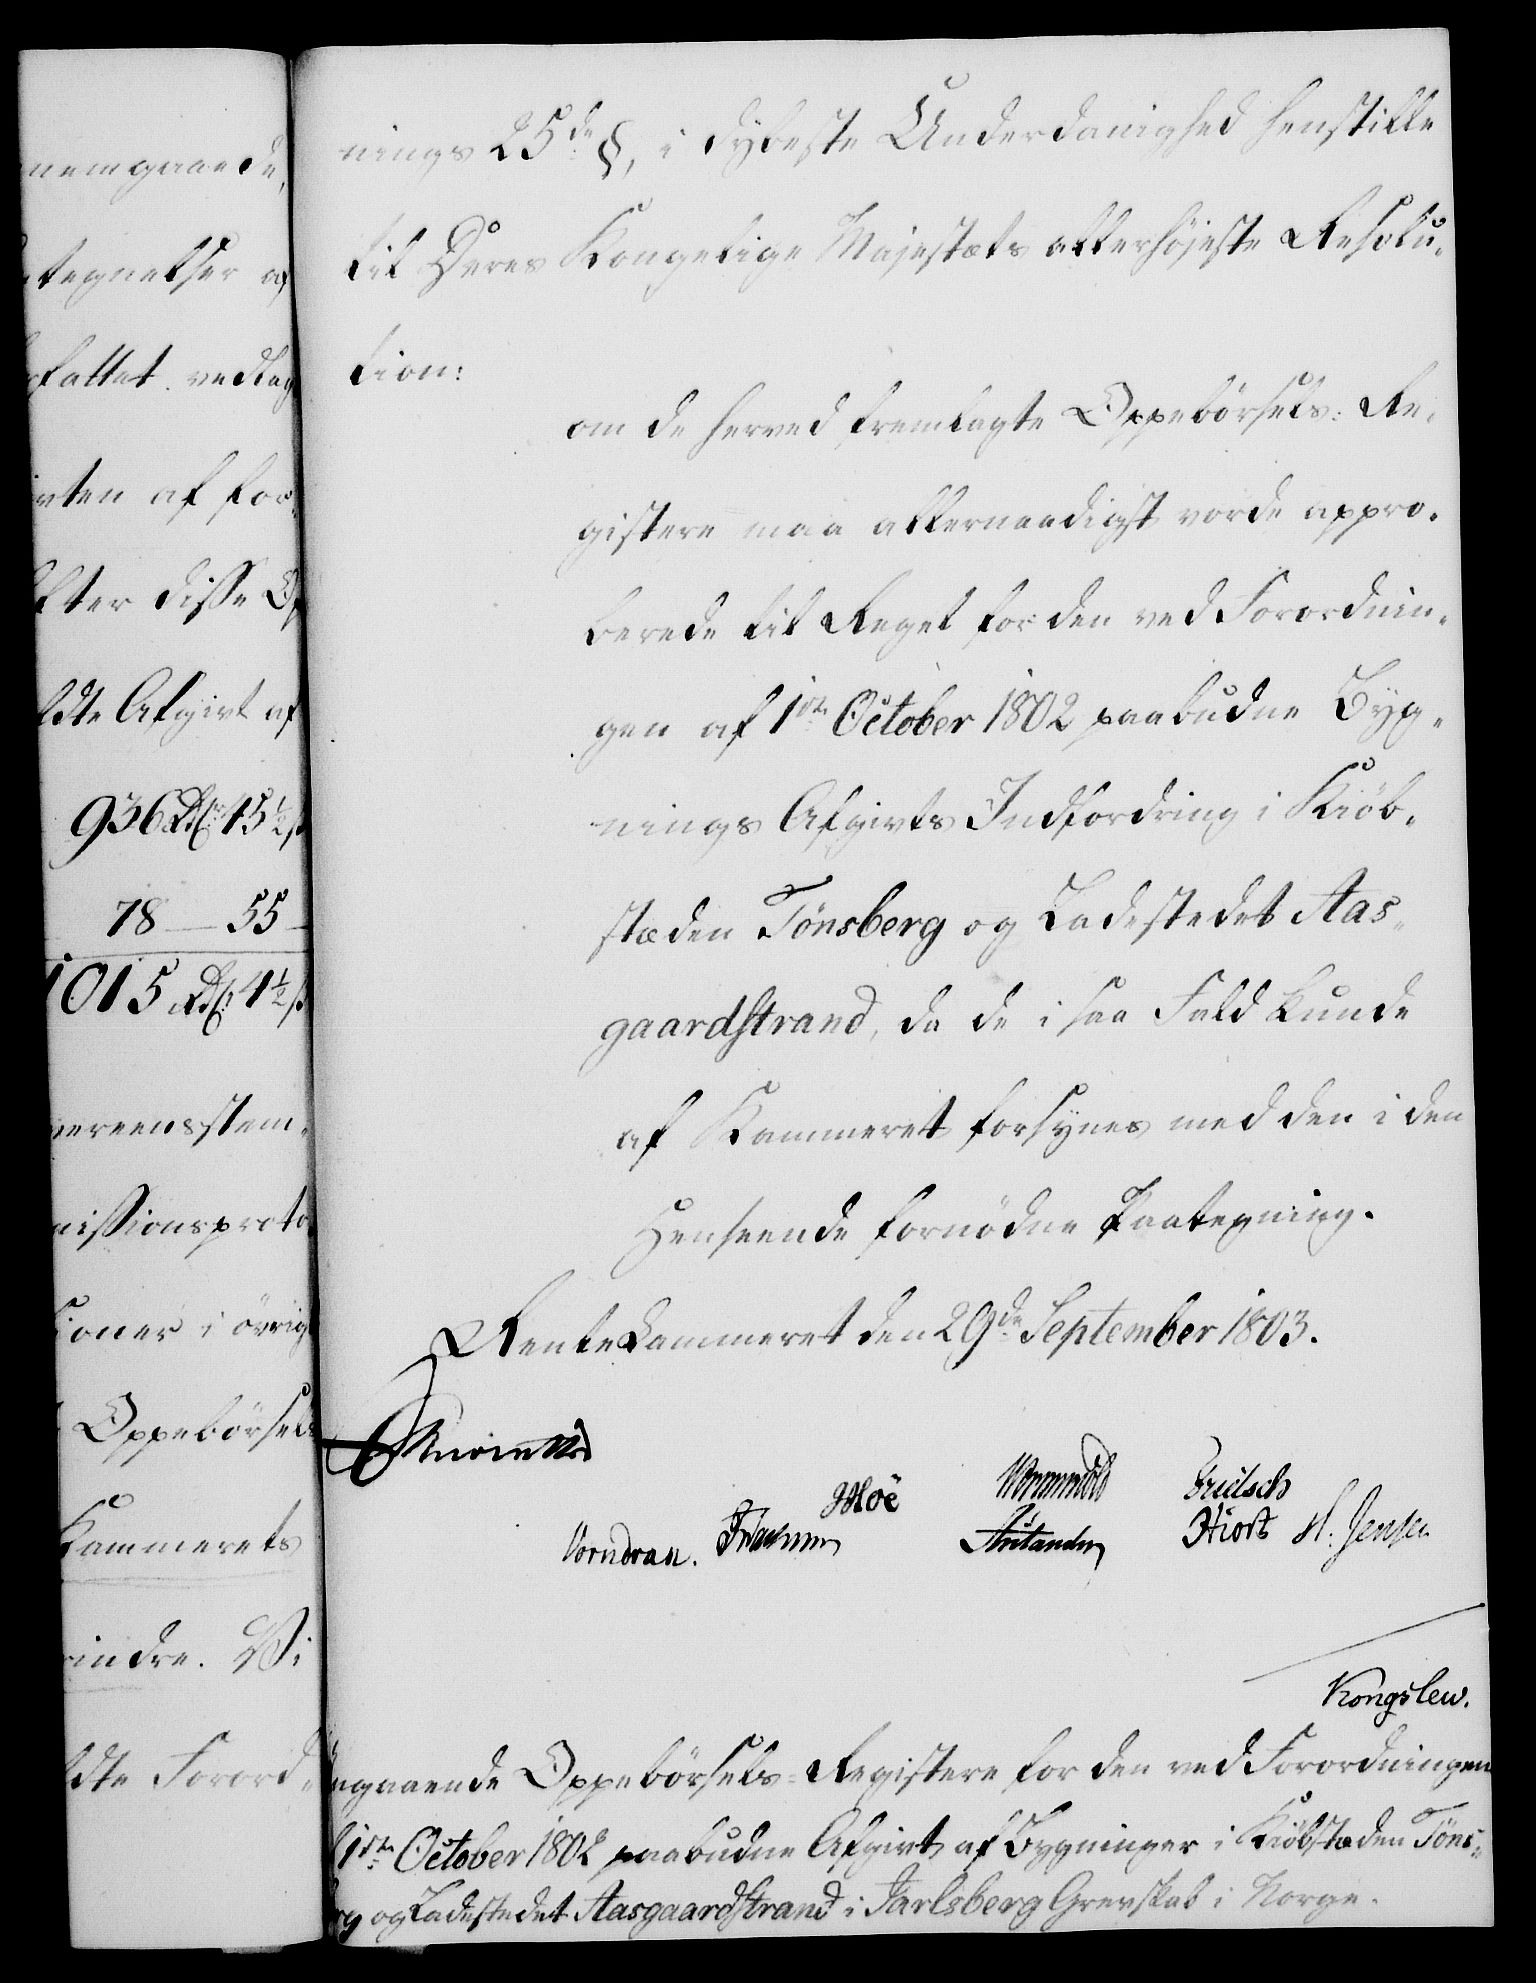 nemgaaende,
tegnelser af
fattet vedlag
vten af for-
fter disse Op
ldte Afgivt af
936 Rdlr 45½ s
78 — 55 —
1015 Rdlr 4½ s
vereensstem-
missionsproto
ioner i övrig
Oppebörsels
Kammerets
indre. Vi
ldte Forord-
nings 25de §, i dybeste Underdanighed henstille
til Deres Kongelige Majestæts allerhöjeste Resolu-
tion:
om de herved fremlagte Oppebörsels-Re-
gistere maa allernaadigst vorde appro-
berede til Regel for den ved Forordnin-
gen af 1ste October 1802 paabudne Byg-
nings Afgivts Indfordring i Kiöb-
stæden Tönsberg og Ladestedet Aas-
gaardstrand, da de i saa Fald kunde
af Kammeret forsynes med den i den
Henseende fornödne Paategning.
Rentekammeret den 29de September 1803.
Moë Wormskiold Fridsch
Vorndran. Hiort H. Jensen
Kongslew.
ngaaende Oppebörsels-Registere for den ved Forordningen
1ste October 1802 paabudne Afgivt af Bygninger i Kiöbstæden Töns-
rg og Ladestedet Aasgaardstrand i Jarlsberg Grevskab i Norge.